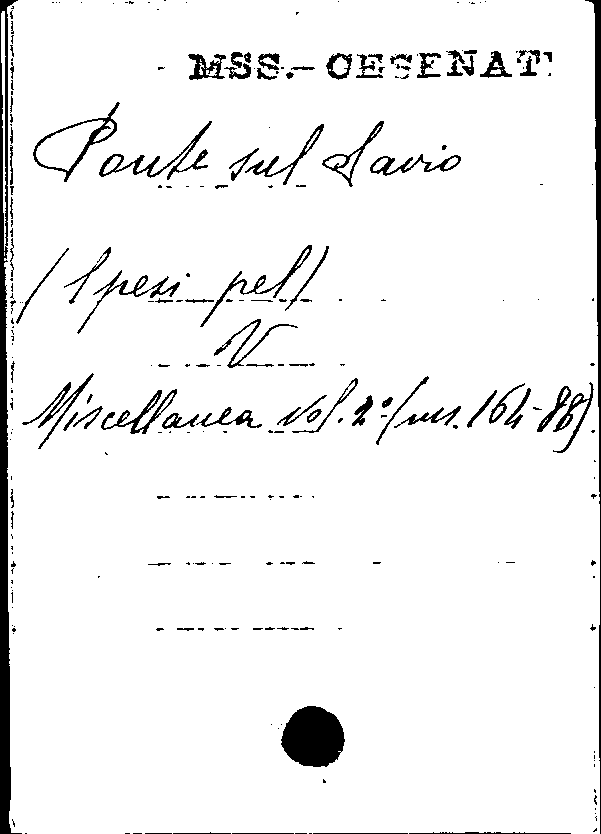 MSS.- CESENATI
Ponte sul Savio
(Spesi pel)
V
Miscellanea vol. 2º (ms. 164-88)